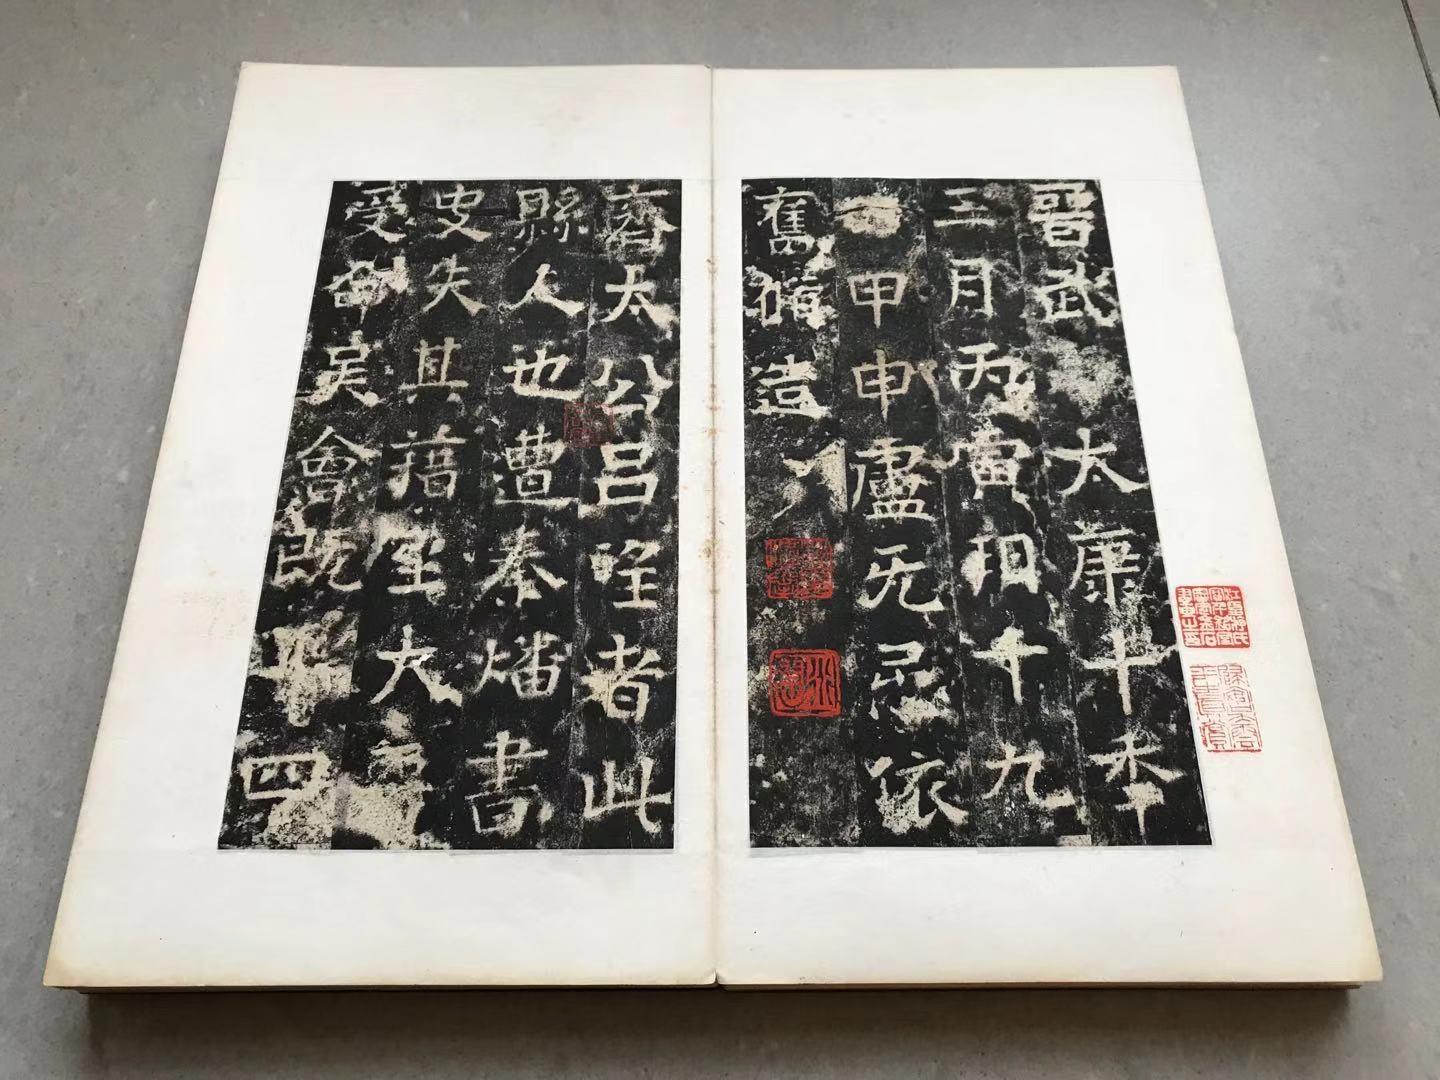 晉武太康十年
三月丙寅朔十九
甲申盧无忌依
舊脩造
齊太公呂望者此
縣人也遭秦燔書
史失其藉至大晉
受命吳會既平四